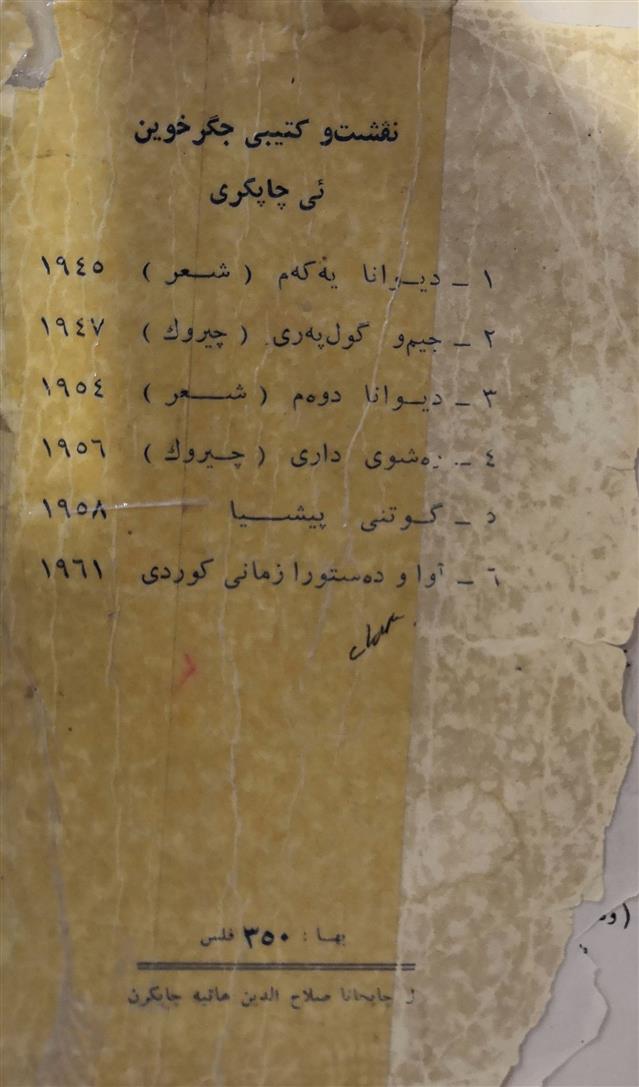 نڤشت و کتیبی جگر خوین
ئی چاپکری
١ ـ دیـوانا یه‌که‌م ( شـعر ) ١٩٤٥
٢ ـ جیم‌و گول‌په‌ری ( چیروك ) ١٩٤٧
٣ ـ دیـوانا دوه‌م ( شـــعر ) ١٩٥٤
٤ ـ ره‌شوی داری ( چـیروك ) ١٩٥٦
٥ ـ گـوتنی پیشـــیا ١٩٥٨
٦ ـ آوا و ده‌ستورا زمانی کوردی ١٩٦١
بهـا : ٣٥٠ فلس
ل چاپخانا صلاح الدین هاتیه چاپکرن